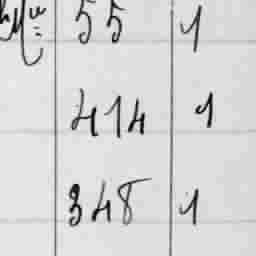 55 1
414 1
348 1